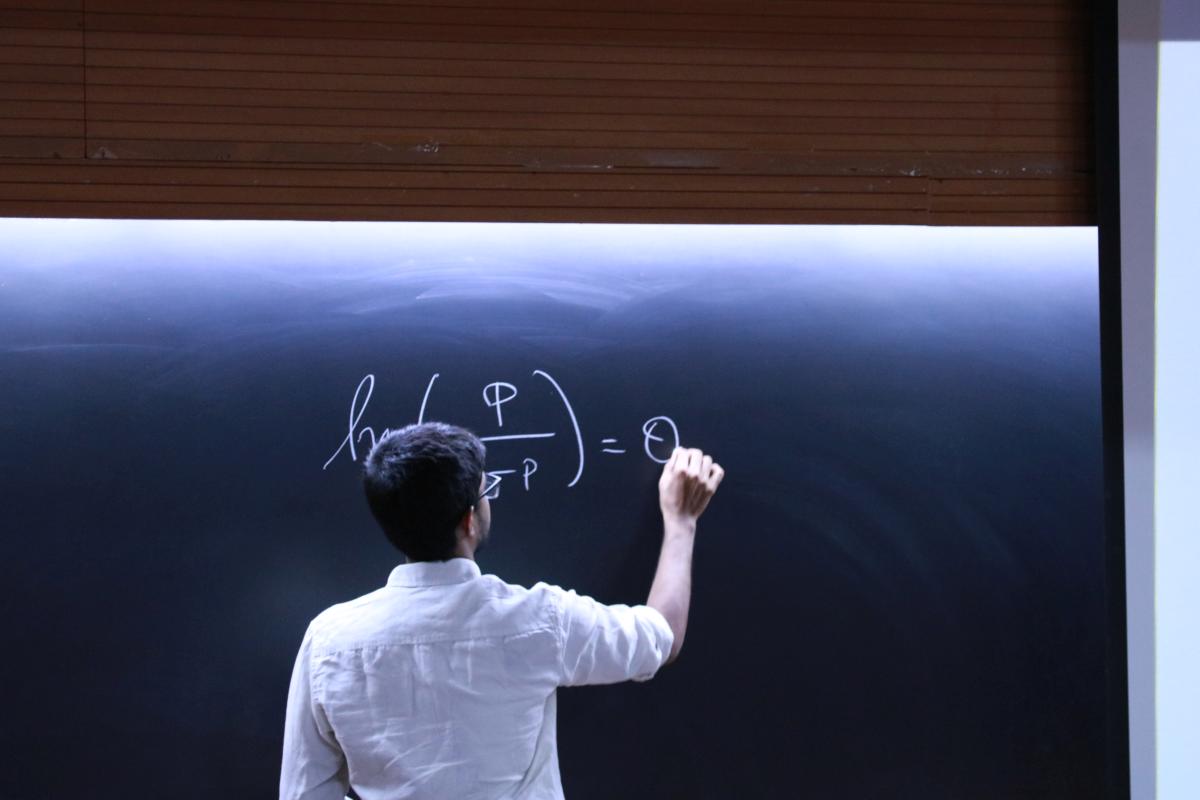 ln( P / Σ P ) = Θ